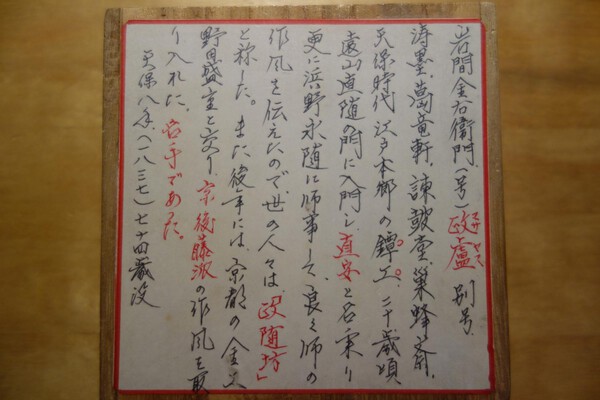 岩間金右衛門(号)政盧 別号、
マサ ヨシ
涛墨、萬竜軒、諫鼓堂、巣蜂斎、
天保時代 江戸本郷の鐔工、二十歳頃
遠山直随の門に入門し、直安と名乗り
更に浜野永随に師事して、良く師の
作風を伝えたので、世の人々は、「政随坊」
と称した。また後年には、京都の金工
野田盛重と交り、京後藤派の作風を取
り入れた、名手であった。
天保八年(一八三七)七十四歳没